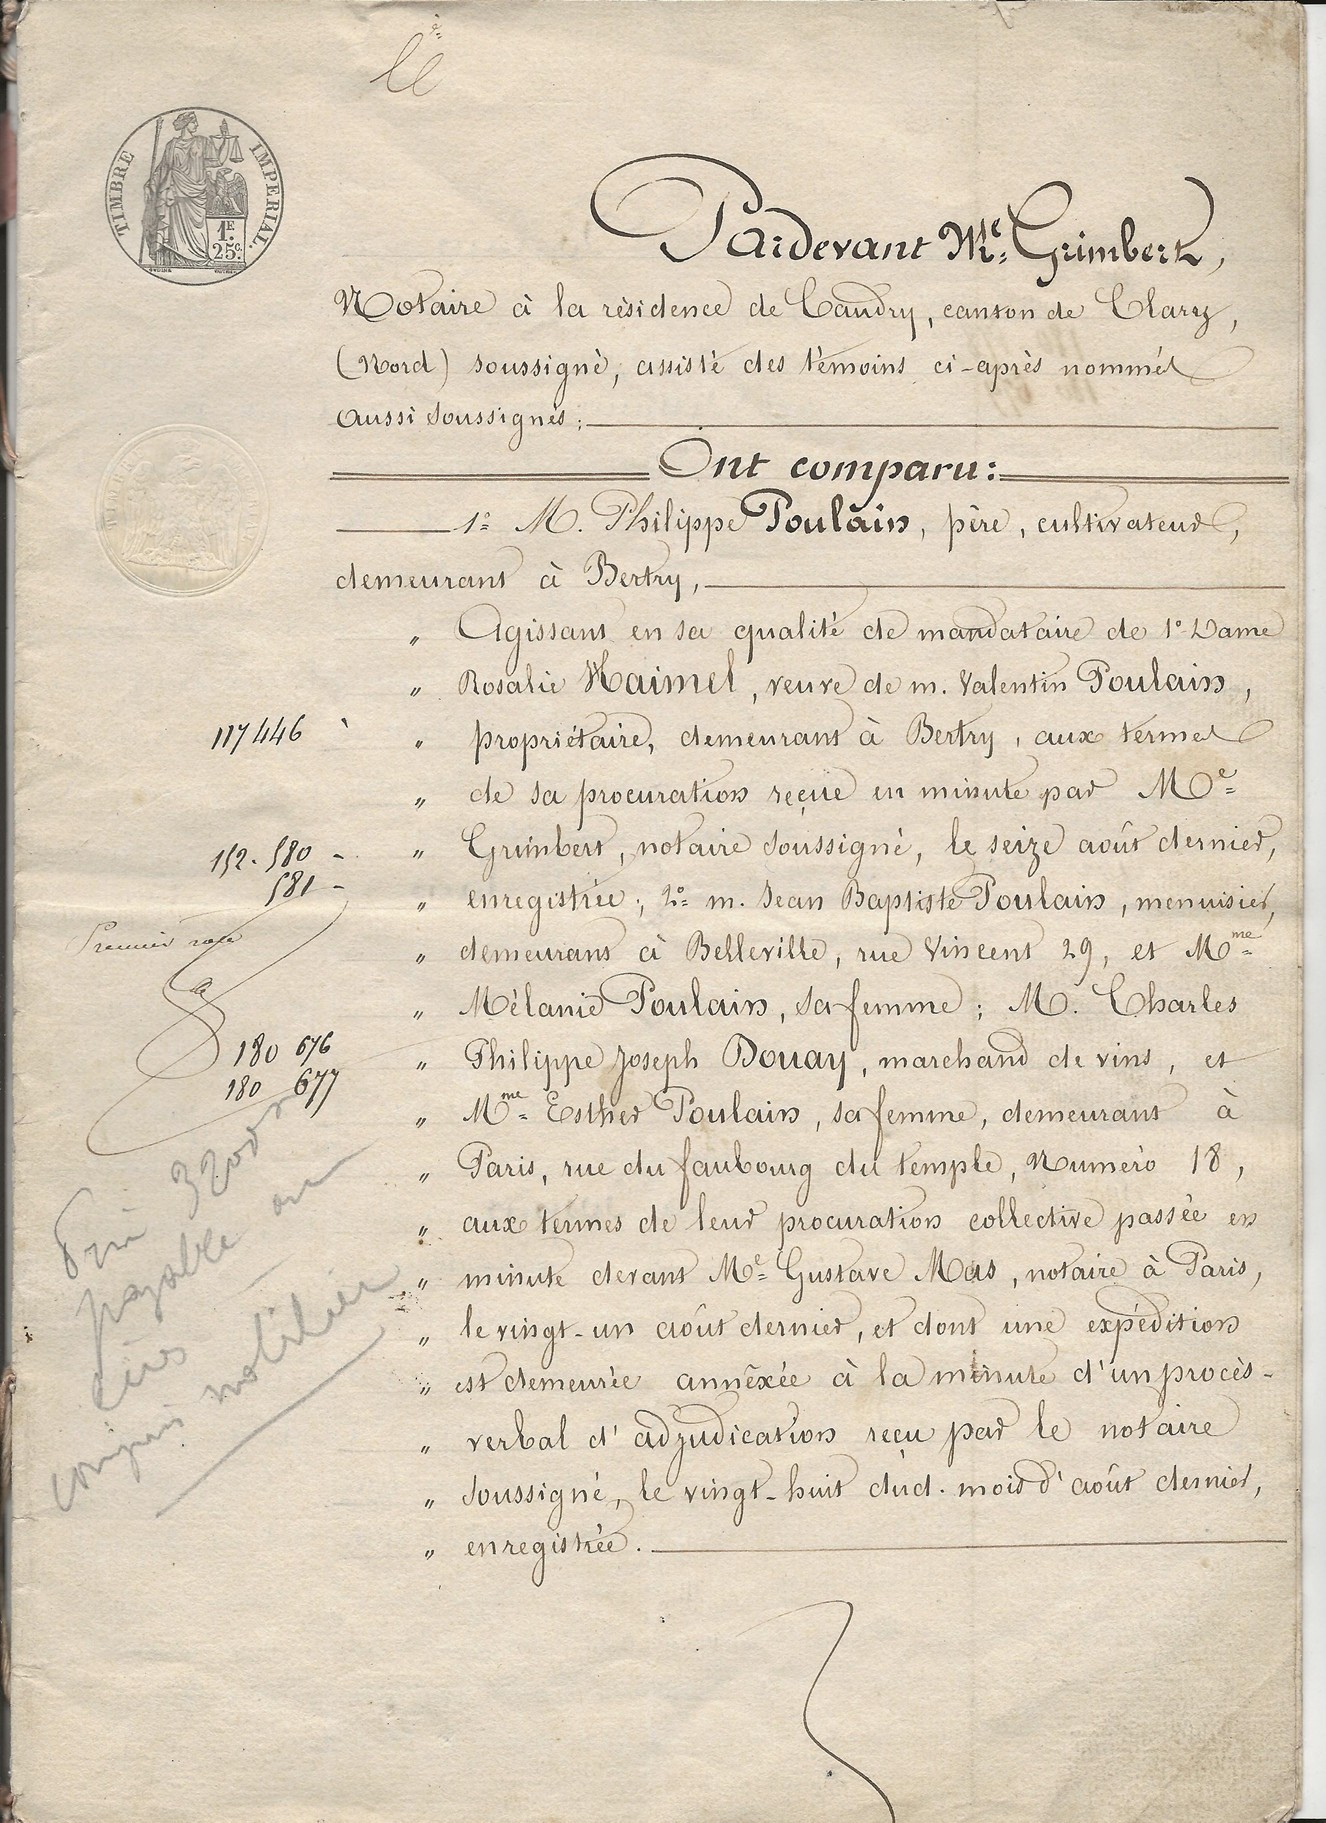 TIMBRE IMPERIAL.
1E.
25c.
Pardevant Me. Grimbert,
Notaire à la résidence de Caudry, canton de Clary,
(Nord) soussigné, assisté des témoins ci-après nommés
aussi soussignés;
Ont comparu:
1° M. Philippe Poulain, père, cultivateur,
demeurant à Bertry,
" Agissant en sa qualité de mandataire de 1° Dame
" Rosalie Haimel, veuve de m. Valentin Poulain,
117446
" propriétaire, demeurant à Bertry, aux termes
" de sa procuration reçue en minute par Me
152. 580
" Grimbert, notaire soussigné, le seize août dernier,
581
" enregistrée; 2° m. Jean Baptiste Poulain, menuisier,
Premier
" demeurant à Belleville, rue Vincent 29, et Mme
" Mélanie Poulain, sa femme; M. Charles
180 676
" Philippe Joseph Douay, marchand de vins, et
180 677
" Mme Esther Poulain, sa femme, demeurant à
" Paris, rue du faubourg du temple, Numéro 18,
" aux termes de leur procuration collective passée en
" minute devant Me Gustave Mas, notaire à Paris,
" le vingt-un août dernier, et dont une expédition
" est demeurée annéxée à la minute d'un procès-
" verbal d'adjudication reçu par le notaire
" soussigné, le vingt-huit dud. mois d'août dernier,
" enregistrée.
3200
payable
compris mobilier